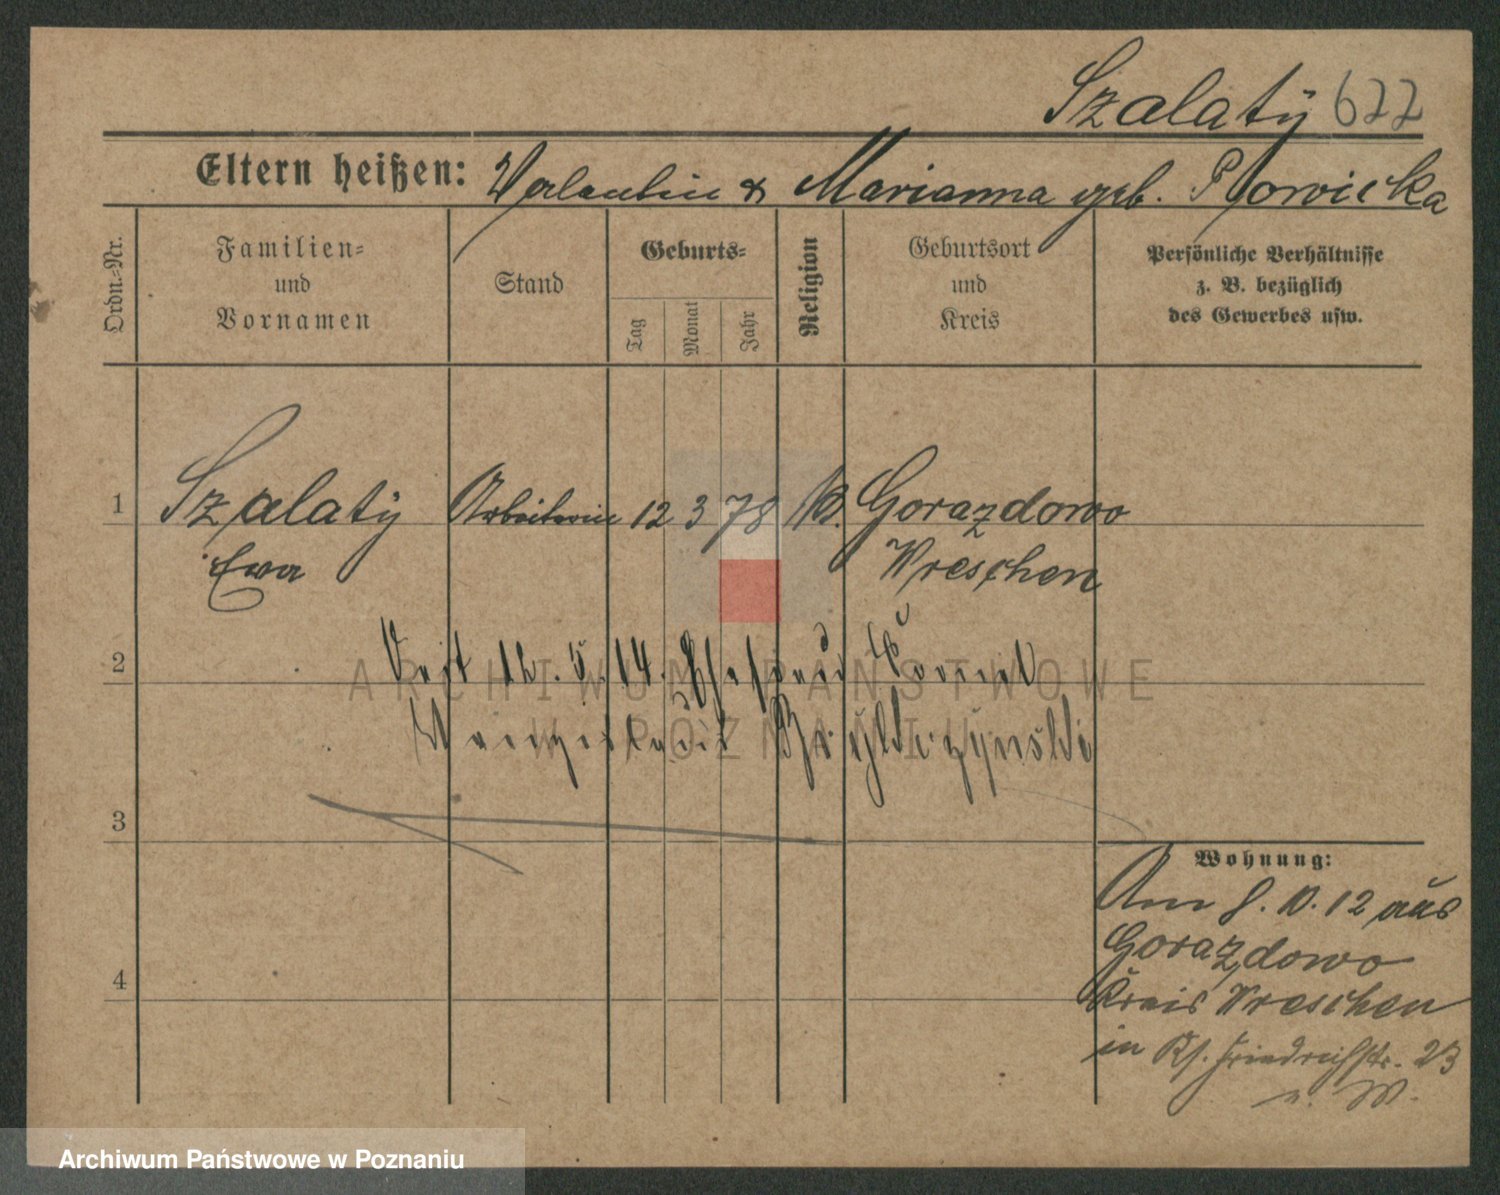 Szalatÿ 622
Eltern heißen: Valentin & Marianna geb. Plowicka
Ordn.=Nr.
Familien=
und
Vornamen
Stand
Geburts=
Tag
Monat
Jahr
Religion
Geburtsort
und
Kreis
Persönliche Verhältnisse
z. B. bezüglich
des Gewerbes usw.
1
Szalatÿ Arbeiterin 12 3 78 k. Gorazdowo
Ewa Wreschen
2
Seit 12. 5. 14. Ehefrau
3
4
Wohnung:
Am 8. 10. 12 aus
Gorazdowo
Kreis Wreschen
in Kr. Friedrichstr. 23
ARCHIWUM PAŃSTWOWE
W POZNANIU
Archiwum Państwowe w Poznaniu